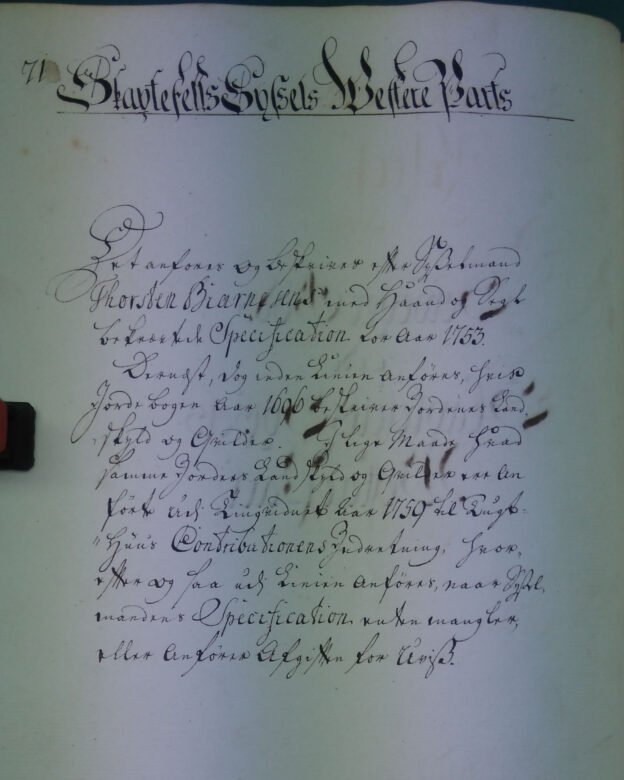 71
Skaptefells Syssels Westere Parts
Det anföres og beskrives efter Sysselmand
Thorsten Biarnesens med Haand og Segl
bekræftede Specification for Aar 1753.
Dernæst, dog inden Linien anföres, hvis
Jordebogen Aar 1696 beskriver Jordenes Land-
skyld og Qvilder. I lige Maade hvad
samme Jorders Landskyld og Qvilder ere an
förte udi Tingvidnet Aar 1759 til Tugt-
Huus Contributionens Indretning, hvor-
efter og saa udj Linien anföres, naar Syssel-
mandens Specification enten mangler,
eller anförer Afgiften for uviss.